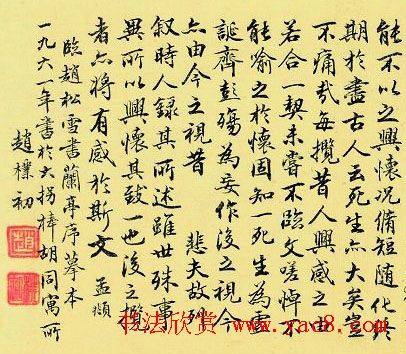 能不以之興懷況脩短随化終
期於盡古人云死生亦大矣豈
不痛哉每攬昔人興感之由
若合一契未嘗不臨文嗟悼不
能喻之於懷固知一死生為虛
誕齊彭殤為妄作後之視今
亦由今之視昔 悲夫故列
叙時人録其所述雖世殊事
異所以興懷其致一也後之攬
者亦將有感於斯文 孟頫
臨趙松雪書蘭亭序摹本
一九六一年書於大拐棒胡同寓所
趙樸初
书法欣赏 www.yac8.com